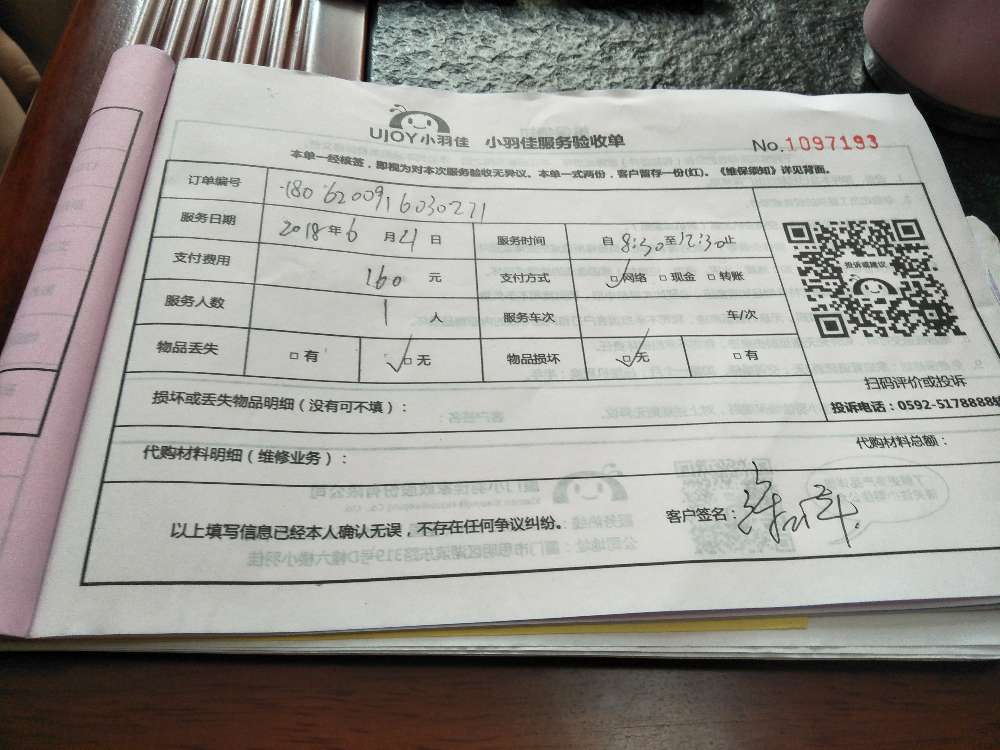 UJOY小羽佳 小羽佳服务验收单 No.1097193
本单一经核签，即视为对本次服务验收无异议。本单一式两份，客户留存一份(红)。《维保须知》详见背面。
订单编号 1806200916030271
服务日期 2018年6月21日 服务时间 自8:30至12:30止
支付费用 160 元 支付方式 □网络 □现金 □转账
服务人数 1 人 服务车次 车/次
物品丢失 □有 □无 物品损坏 □无 □有
投诉或建议
扫码评价或投诉
投诉电话：0592-5178888转
损坏或丢失物品明细（没有可不填）：
代购材料明细（维修业务）： 代购材料总额：
以上填写信息已经本人确认无误，不存在任何争议纠纷。 客户签名：